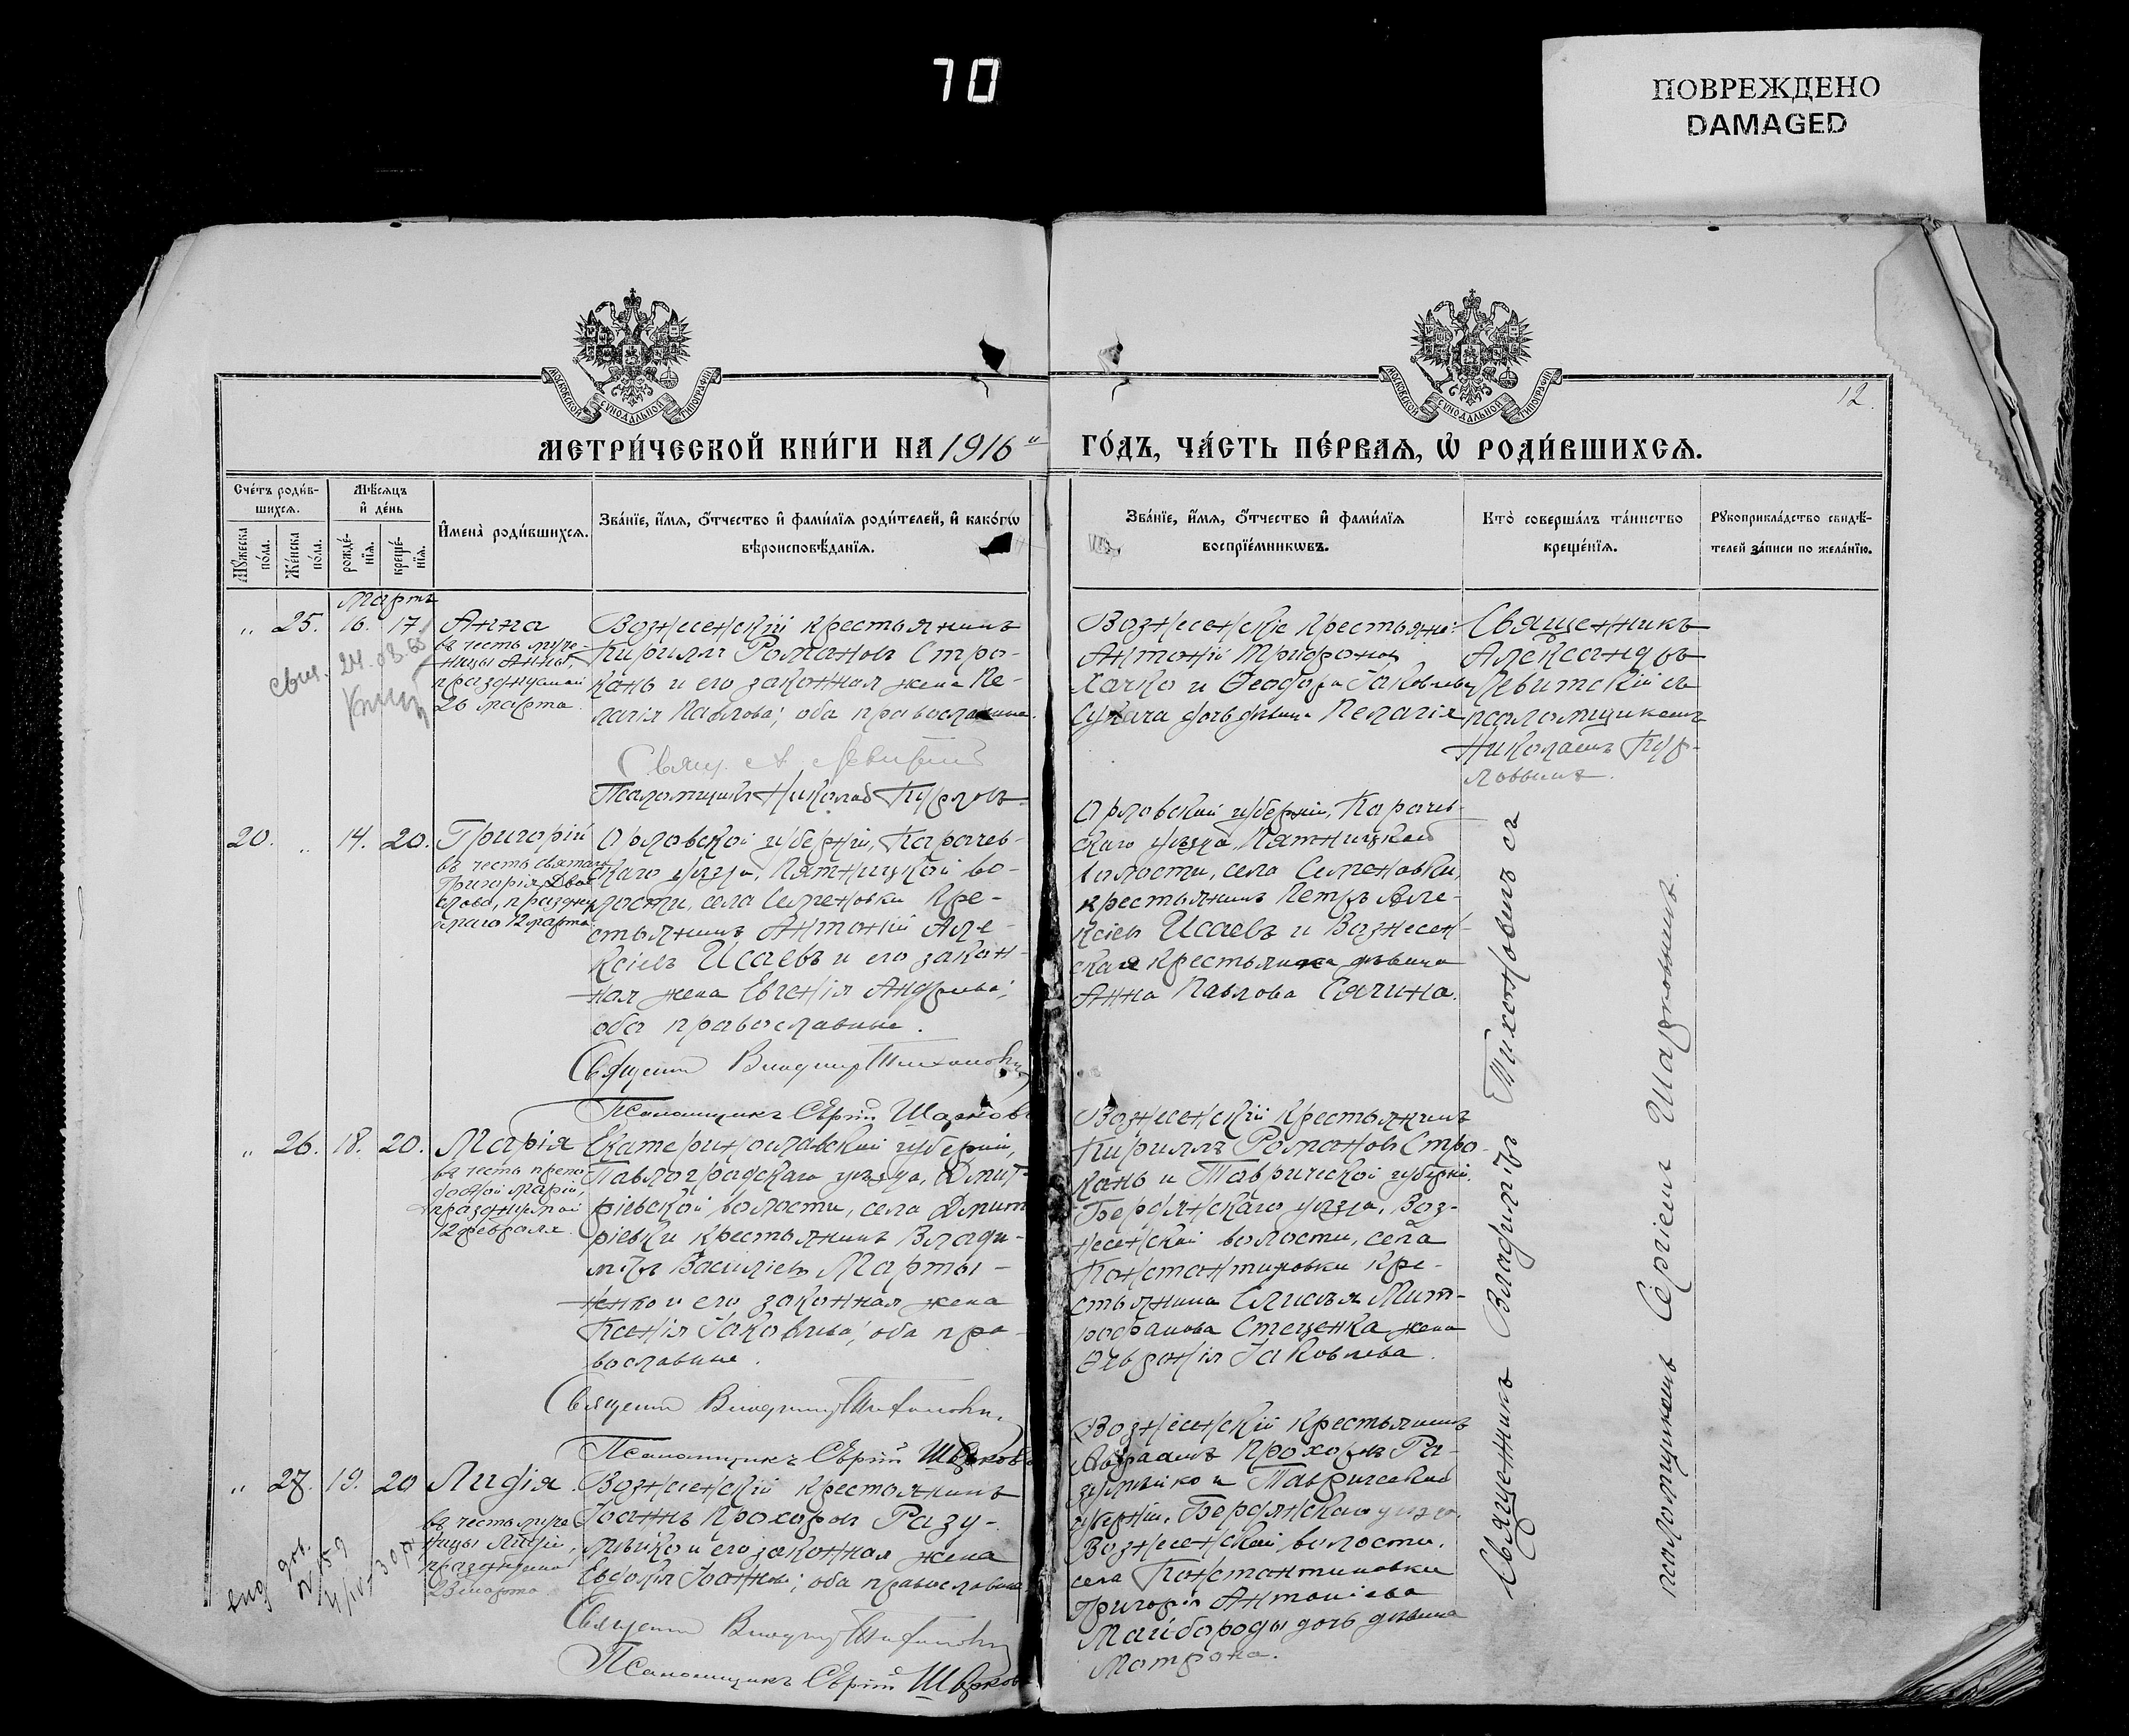 70
ПОВРЕЖДЕНО
DAMAGED
МОСКОВСКОЙ СѴНОДАЛЬНОЙ ТИПОГРАФІИ
МОСКОВСКОЙ СѴНОДАЛЬНОЙ ТИПОГРАФІИ
12.
МЕТРИ́ЧЕСКОЙ КНИ́ГИ НА 1916
ГО́ДЪ, ЧА́СТЬ ПЕ́РВАѦ, Ѡ҆ РОДИ́ВШИХСѦ.
Сче́тъ роди́в-
шихсѧ.
Мѣ́сѧцъ
и҆ де́нь
Мꙋ́жеска по́ла.
Же́нска по́ла.
рожде́-
нїѧ.
креще́-
нїѧ.
И҆мена̀ роди́вшихсѧ.
Зва́нїе, и҆́мѧ, ѻ҆́тчество и҆ фами́лїѧ роди́телей, и҆ како́гѡ
вѣроисповѣ́данїѧ.
Зва́нїе, и҆́мѧ, ѻ҆́тчество и҆ фами́лїѧ
воспрїе́мникѡвъ.
Кто̀ соверша́лъ та́инство
креще́нїѧ.
Рꙋкоприкла́дство свидѣ́-
телей за́писи по жела́нїю.
Мартъ
„ 25. 16. 17.
Анна
въ честь муче-
ницы Анны,
празднуемой
26 марта.
Вознесенскій крестьянинъ
Кириллъ Романовъ Стро-
кань и его законная жена Пе-
лагія Павлова; оба православные.
Свящ. А. Левитскій
Псаломщикъ Николай Курловъ
Вознесенскіе крестьяне:
Антоній Трифонов
и Ѳеодора Іаковлева
дочь дѣвица Пелагія
Священникъ
Александръ
Левитскій съ
псаломщикомъ
Николаемъ Кур-
ловымъ.
20. „ 14. 20.
Григорій
въ честь святаго
Григорія Двое-
слова, праздну-
емаго 12 марта
Орловской губерніи, Карачев-
скаго уѣзда, Пятницкой во-
лости, села Семеновки кре-
стьянинъ Антоній Але-
ксіевъ Исаевъ и его закон-
ная жена Евгенія Андреева;
оба православные.
Священ. Владимір Тихонович
Псаломщикъ Сергій Шарков
Орловской губерніи, Карачев-
скаго уѣзда, Пятницкой
волости, села Семеновки,
крестьянинъ Петръ Але-
ксіевъ Исаевъ и Вознесен-
ская крестьянка дѣвица
Анна Павлова Сячина.
„ 26. 18. 20.
Марія
въ честь препо-
добной Маріи,
празднуемой
12 февраля.
Екатеринославской губерніи,
Павлоградскаго уѣзда, Дмит-
ріевской волости, села Дмит-
ріевки крестьянинъ Влади-
міръ Василіевъ Марты-
ненко и его законная жена
Ксенія Іаковлева; оба пра-
вославные.
Священ. Владимір Тихонович
Псаломщикъ Сергій Шарков
Вознесенскій крестьянинъ
Кириллъ Романовъ Стро-
кань и Таврической губерніи,
Бердянскаго уѣзда, Воз-
несенской волости, села
Константиновки кре-
стьянина Елисея Мит-
рофанова Стеценка жена
Февронія Іаковлева.
„ 27. 19. 20
Лидія.
въ честь муче-
ницы Лидіи,
празднуемой
23 марта
Вознесенскій крестьянинъ
Іоаннъ Прохоровъ Разу-
мѣйко и его законная жена
Евдокія Іоаннова; оба православные
Священ. Владимір Тихонович
Псаломщикъ Сергій Шарков
Вознесенскій крестьянинъ
Авраамъ Прохоровъ Ра-
зумѣйко и Таврической
губерніи, Бердянскаго уѣзда,
Вознесенской волости,
села Константиновки
Григорія Антоніева
Майбороды дочь дѣвица
Матрона.
Священникъ Владиміръ Тихоновичъ съ
псаломщикомъ Сергіемъ Шарковымъ.